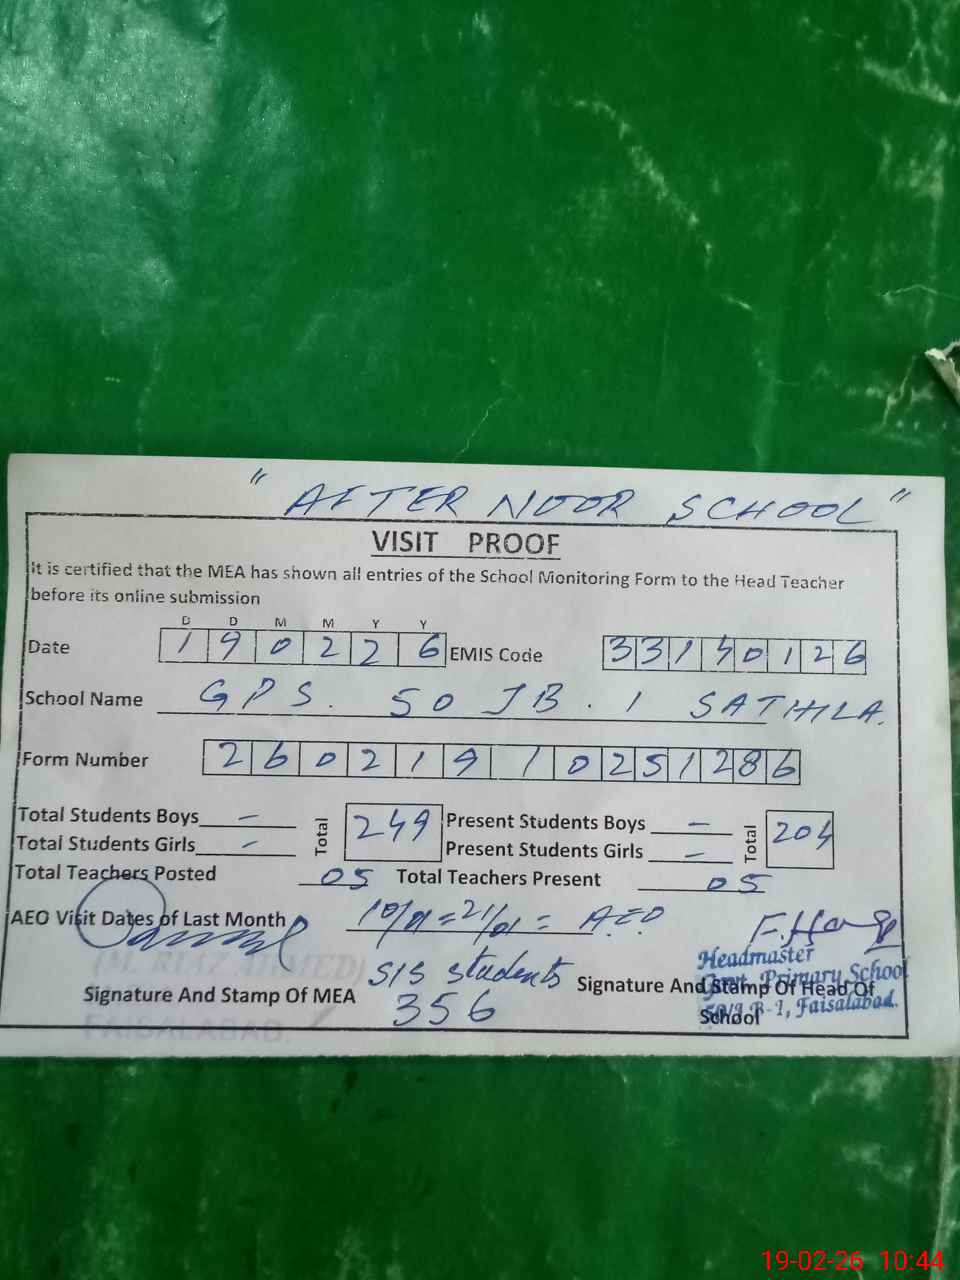 "AFTER NOOR SCHOOL"
VISIT PROOF
It is certified that the MEA has shown all entries of the School Monitoring Form to the Head Teacher
before its online submission
D D M M Y Y
Date 190226 EMIS Code 33140126
School Name GPS. 50 JB. 1 SATHILA.
Form Number 26021910251286
Total Students Boys - Total 249 Present Students Boys - Total 204
Total Students Girls - Present Students Girls -
Total Teachers Posted 05 Total Teachers Present 05
AEO Visit Dates of Last Month 10/01=21/01= A.E.O
(M. RIAZ AHMED) SIS students Headmaster
Signature And Stamp Of MEA 356 Signature And Stamp Of Head Of School
Govt. Primary School
FAISALABAD. B-1, Faisalabad.
19-02-26 10:44